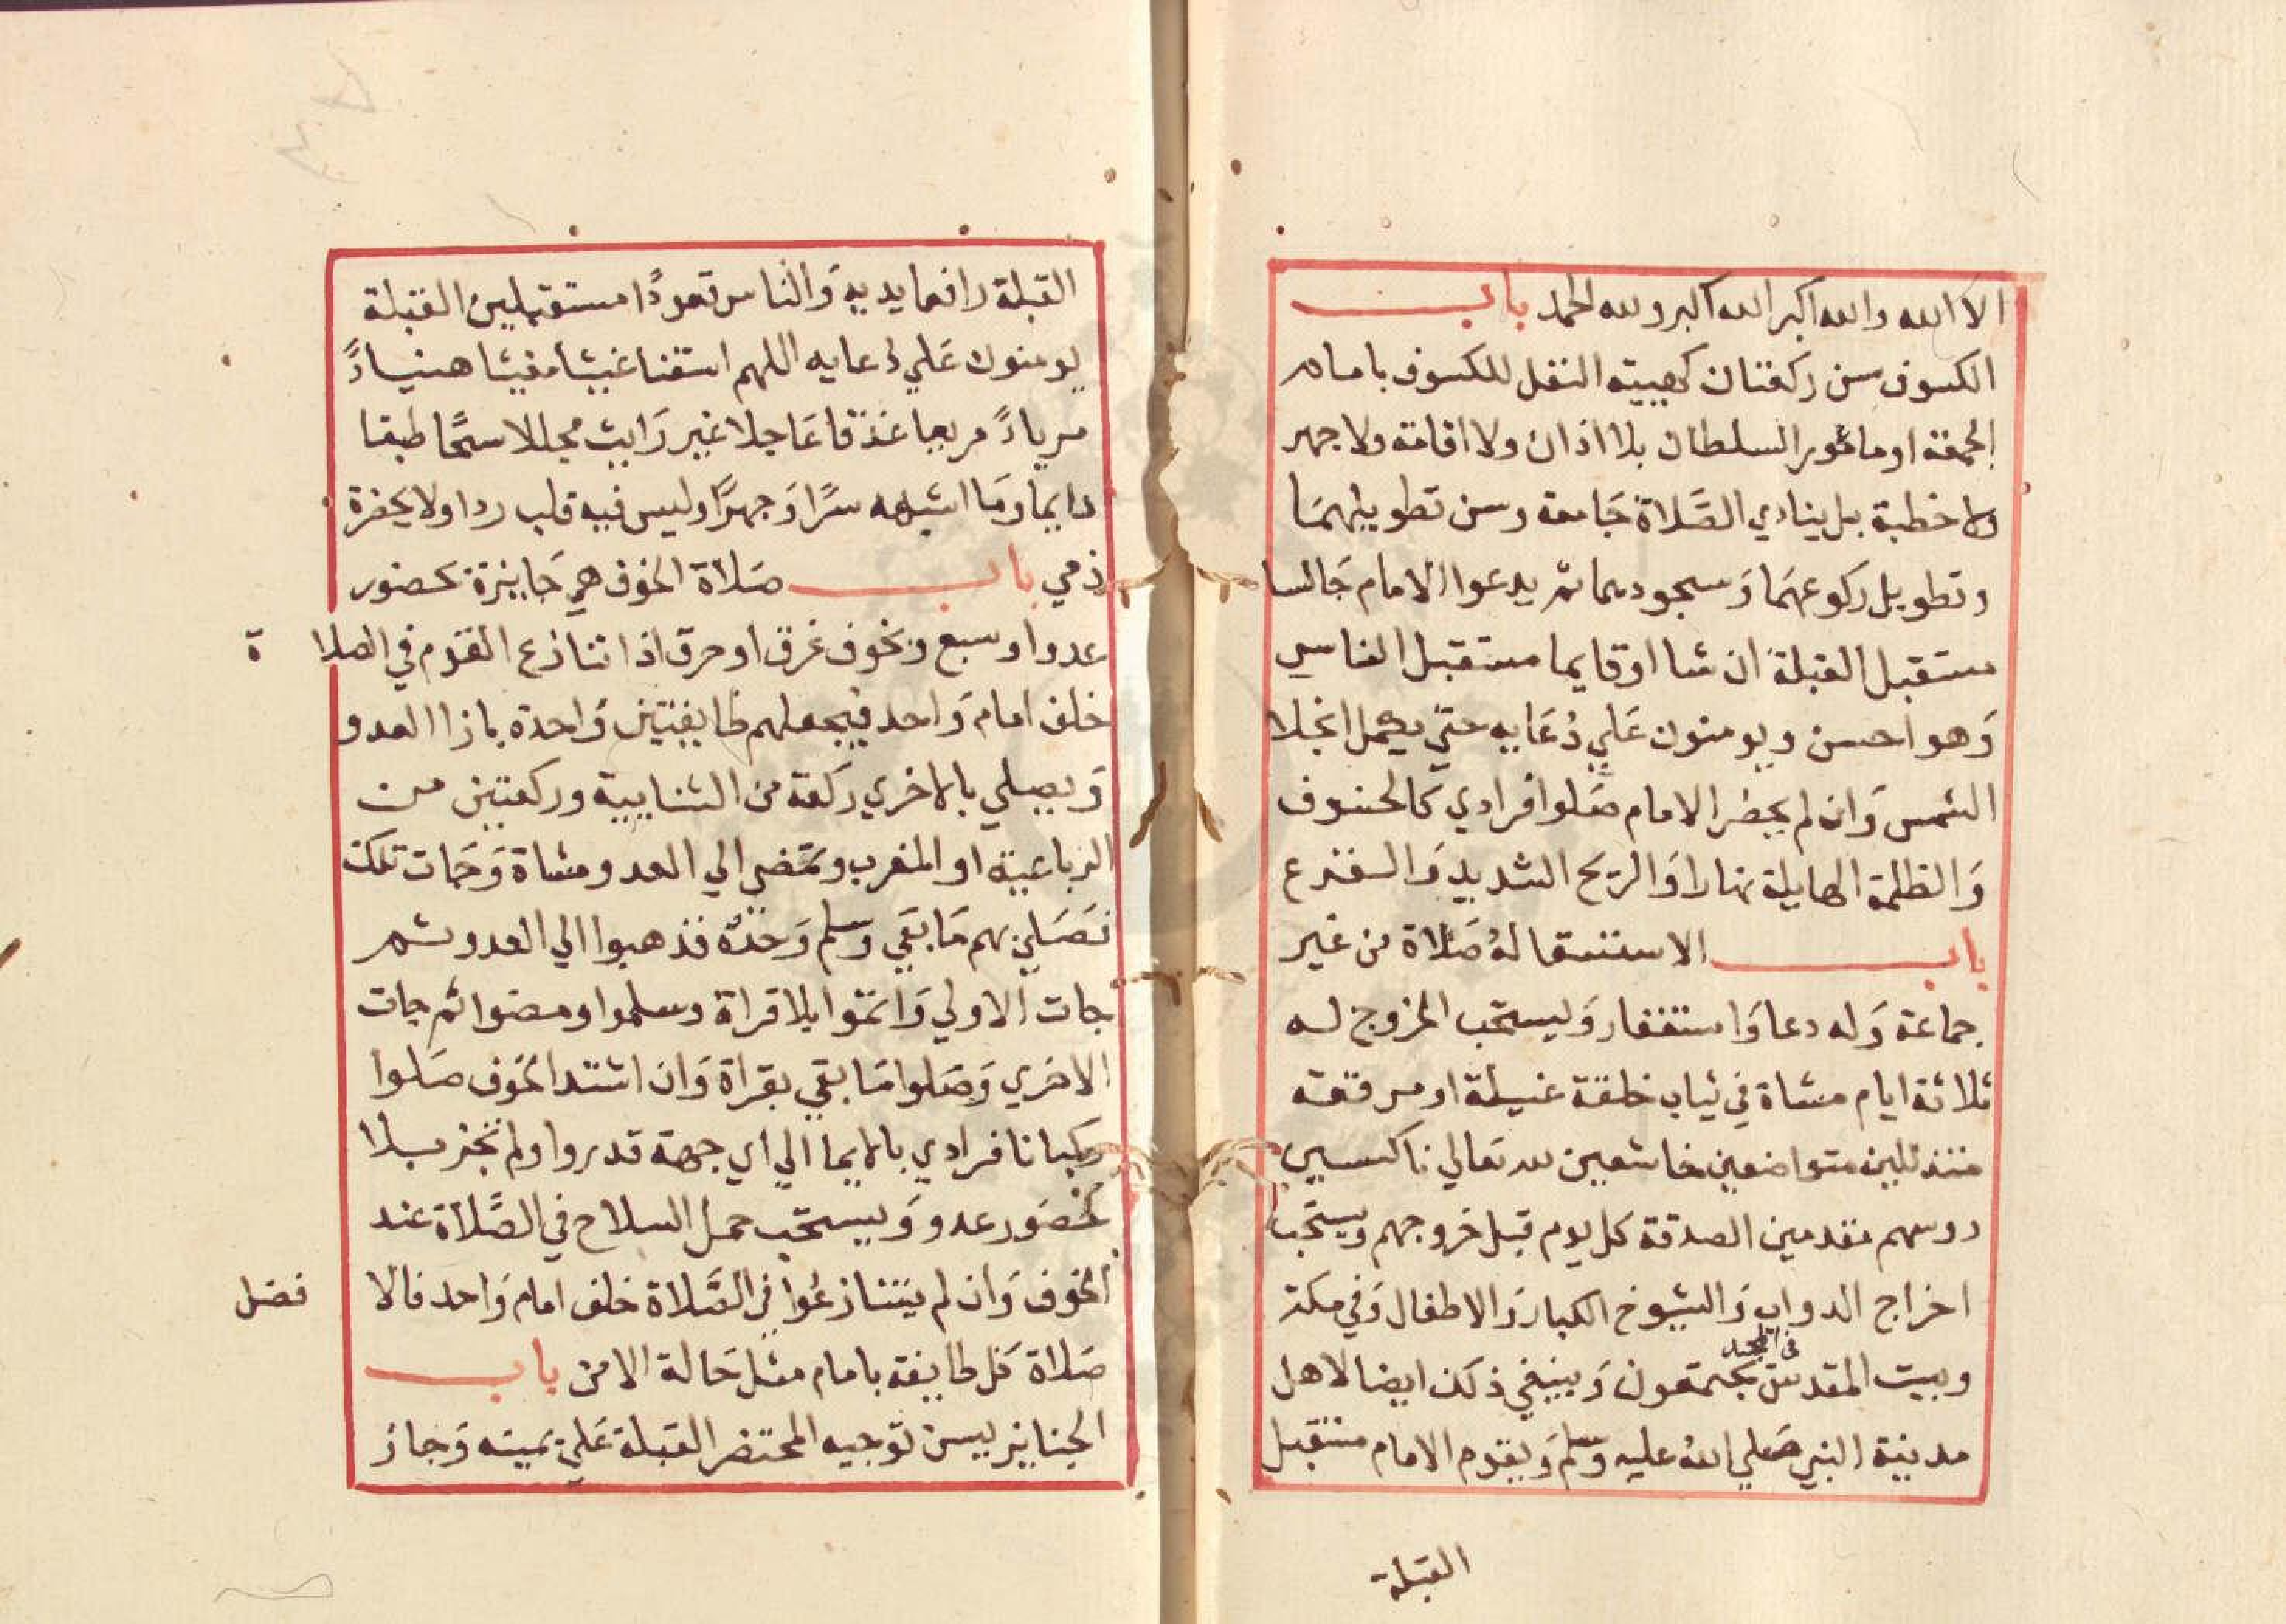 الا الله والله اكبر الله اكبر ولله الحمد باب
الكسوف سن ركعتان كهيية النفل للكسوف بامام
الجمعة او مامور السلطان بلا اذان ولا اقامة ولا جهر
ولا خطبة بل ينادي الصَّلاة جَامعة وسن تطويلهمَا
وتطويل ركوعهمَا وَسجودهما ثم يدعوا الامام جَالسا
مستقبل القبلة ان شا اوقايما مستقبل الناس
وَهو احسن ويومنون عَلي دُعَايه حتي يكمل انجلا
الشمس وَان لم يحضر الامام صَلوا فرادي كالخسوف
وَالظلمة الهايلة نهارا وَالريَح الشديد وَالفزع
باب الاستسقا لهُ صَلاة من غَير
جماعة وَله دعا وَاستغفار وَيستحَب الخروج له
ثلاثة ايام مشاة في ثياب خلقة غسيلة او مرقعة
متذللين متواضعين خاشعين لله تعالي ناكسين
روسهم مقدمين الصدقة كل يوم قبل خروجهم ويستحَب
اخراج الدواب وَالشيوخ الكبار وَالاطفال وَفي مكة
في المسجد
وبيت المقدس يجتمعون وَينبغي ذلك ايضا لاهل
مدينة النبي صَلي الله عليه وَسلم وَيقوم الامام مستقبل
القبلة
القبلة رافعا يديه وَالناس قعودًا مستقبلين القبلة
يومنون عَلي دعايه اللهم اسقنا غيثا مغيثا هنيادً
مريادً مريعا غدقا عَاجلا غير رَايث مجللا سحًا طبقا
دايما وَمَا اشبهه سرًا وَجهرًا وليس فيه قلب ردا ولا يحضرة
ذمي باب صَلاة الخوف هي جَايزة بحضور
عدو او سبع وَبخوف غرق او حرق اذا تنازع القوم في الصلاة
خلف امام وَاحد فيجعلهم طايفتين وَاحدة بازا العدو
وَيصلي بالاخري ركعة من الثنايية وركعتين من
الرباعية او المغرب وتمضي الي العدو مشاة وَجَات تلك
فصَلي بهم مَا بقي وَسلم وَحدهُ فذهبوا الي العدو ثم
جات الاولي وَاتموا بلا قراة وسلموا ومضوا ثم جات
الاخري وَصَلوا مَا بقي بقراة وَان اشتد الخوف صَلوا
ركبانا فرادي بالايما الي اي جهة قدروا ولم تجز بلا
حُضَور عدو وَيستحَب حمل السلاح في الصَّلاة عند
الخوف وَان لم يتنازعُوا في الصَّلاة خلف امام وَاحد فالا
فضل
صَلاة كل طايفة بامام مثل حَالة الامن باب
الجنايز يسن توجيه المحتضر القبلة عَلي يمينه وَجاز